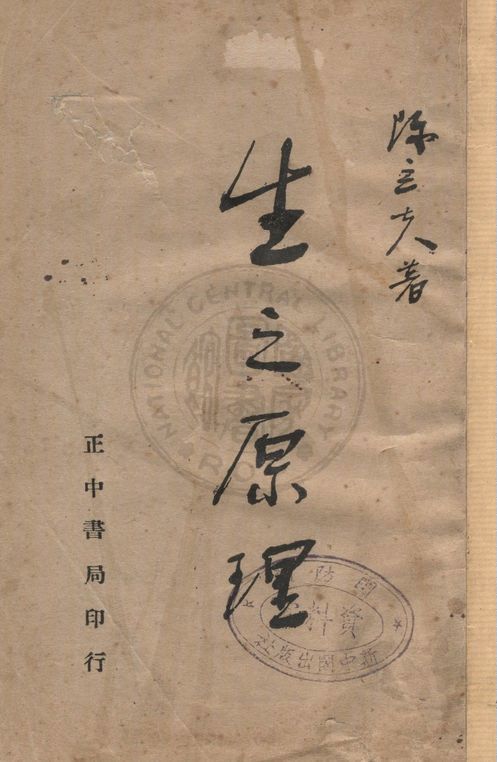 陳立夫著
生之原理
正中書局印行
國防
資料
新中國出版社
NATIONAL CENTRAL LIBRARY